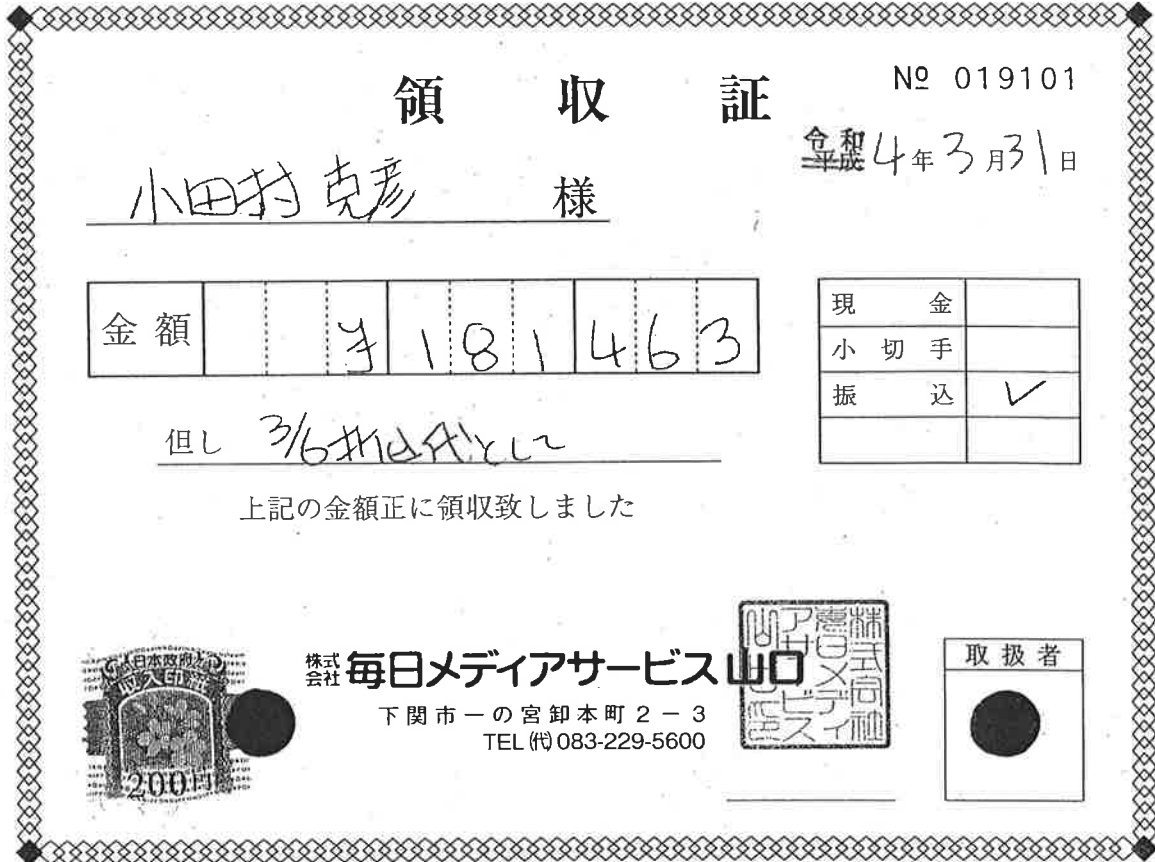 領収証
№ 019101
令和
平成 4年3月31日
小田村克彦 様
金額 ¥181463
現金
小切手
振込 ✓
但し 3/6折込代として
上記の金額正に領収致しました
日本政府
収入印紙
200円
株式会社 毎日メディアサービス山口
下関市一の宮卸本町2-3
TEL(代)083-229-5600
取扱者